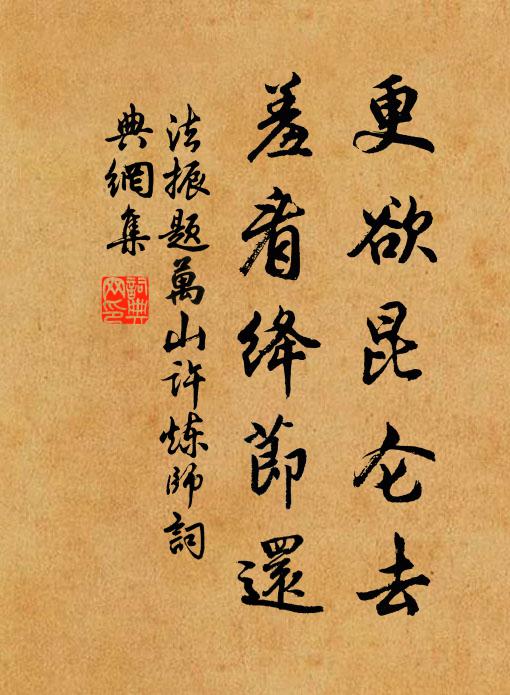 更欲昆仑去
羞看绛節還
法振題萬山许炼師詞
典網集
詞典
网印